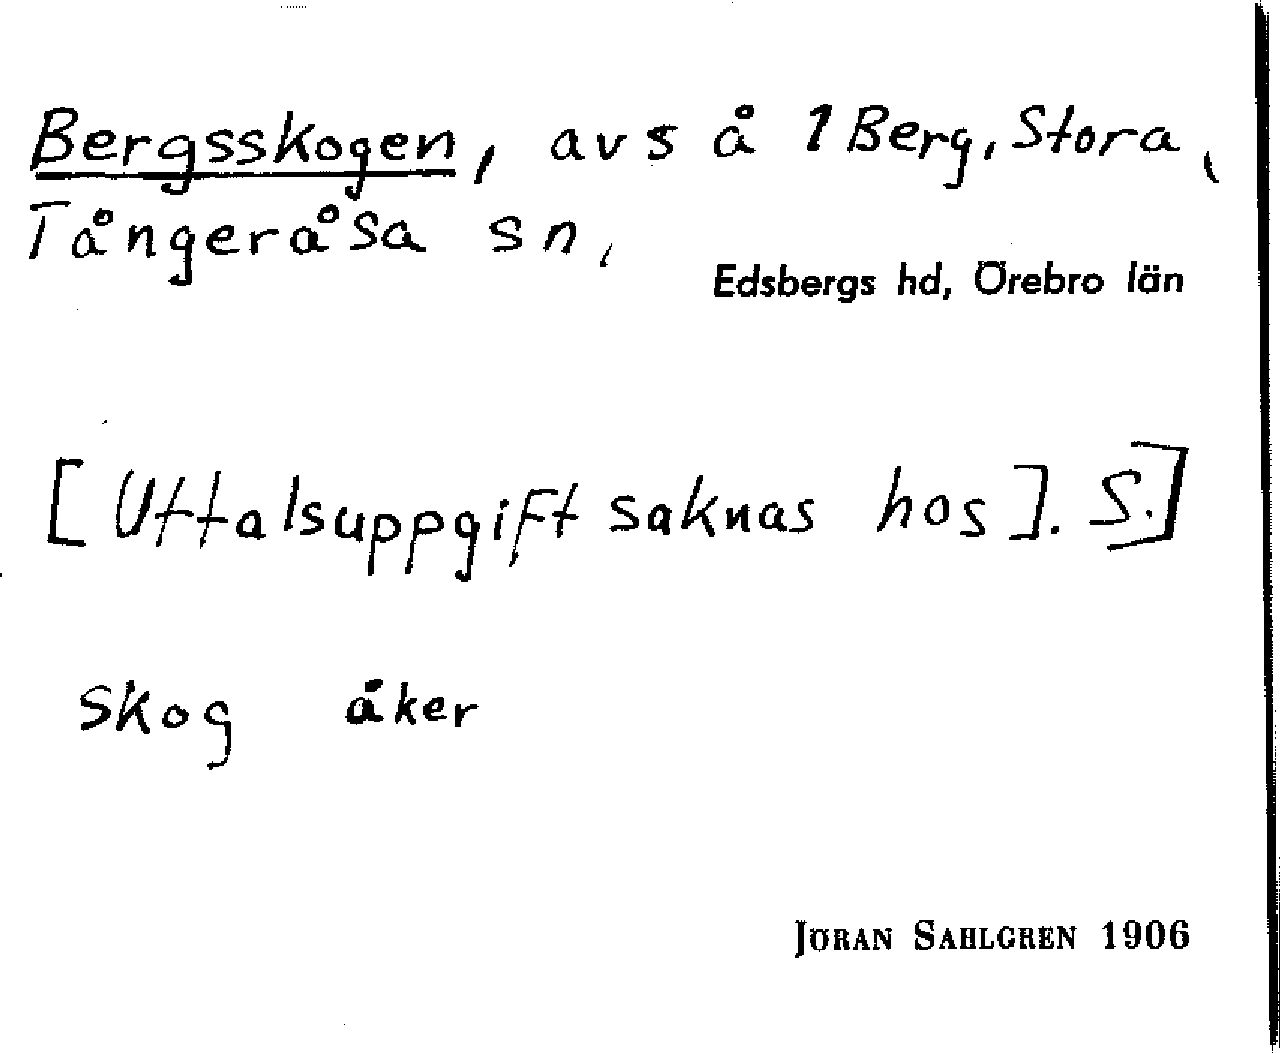 Bergsskogen, avs å 1 Berg, Stora,
Tångeråsa sn,
Edsbergs hd, Örebro län
[Uttalsuppgift saknas hos J. S.]
skog åker
JÖRAN SAHLGREN 1906